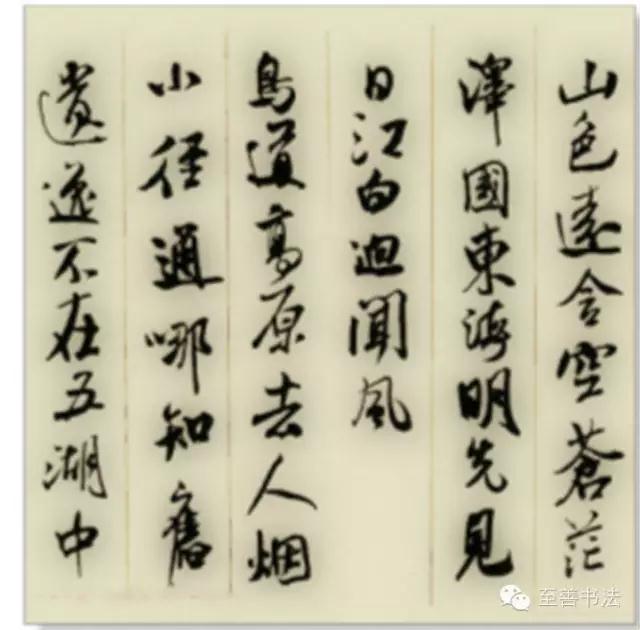 山色遠含空蒼茫
澤國東海明先見
日江白迥聞風
鳥道高原去人烟
小径通哪知舊
遺逸不在五湖中
至善书法